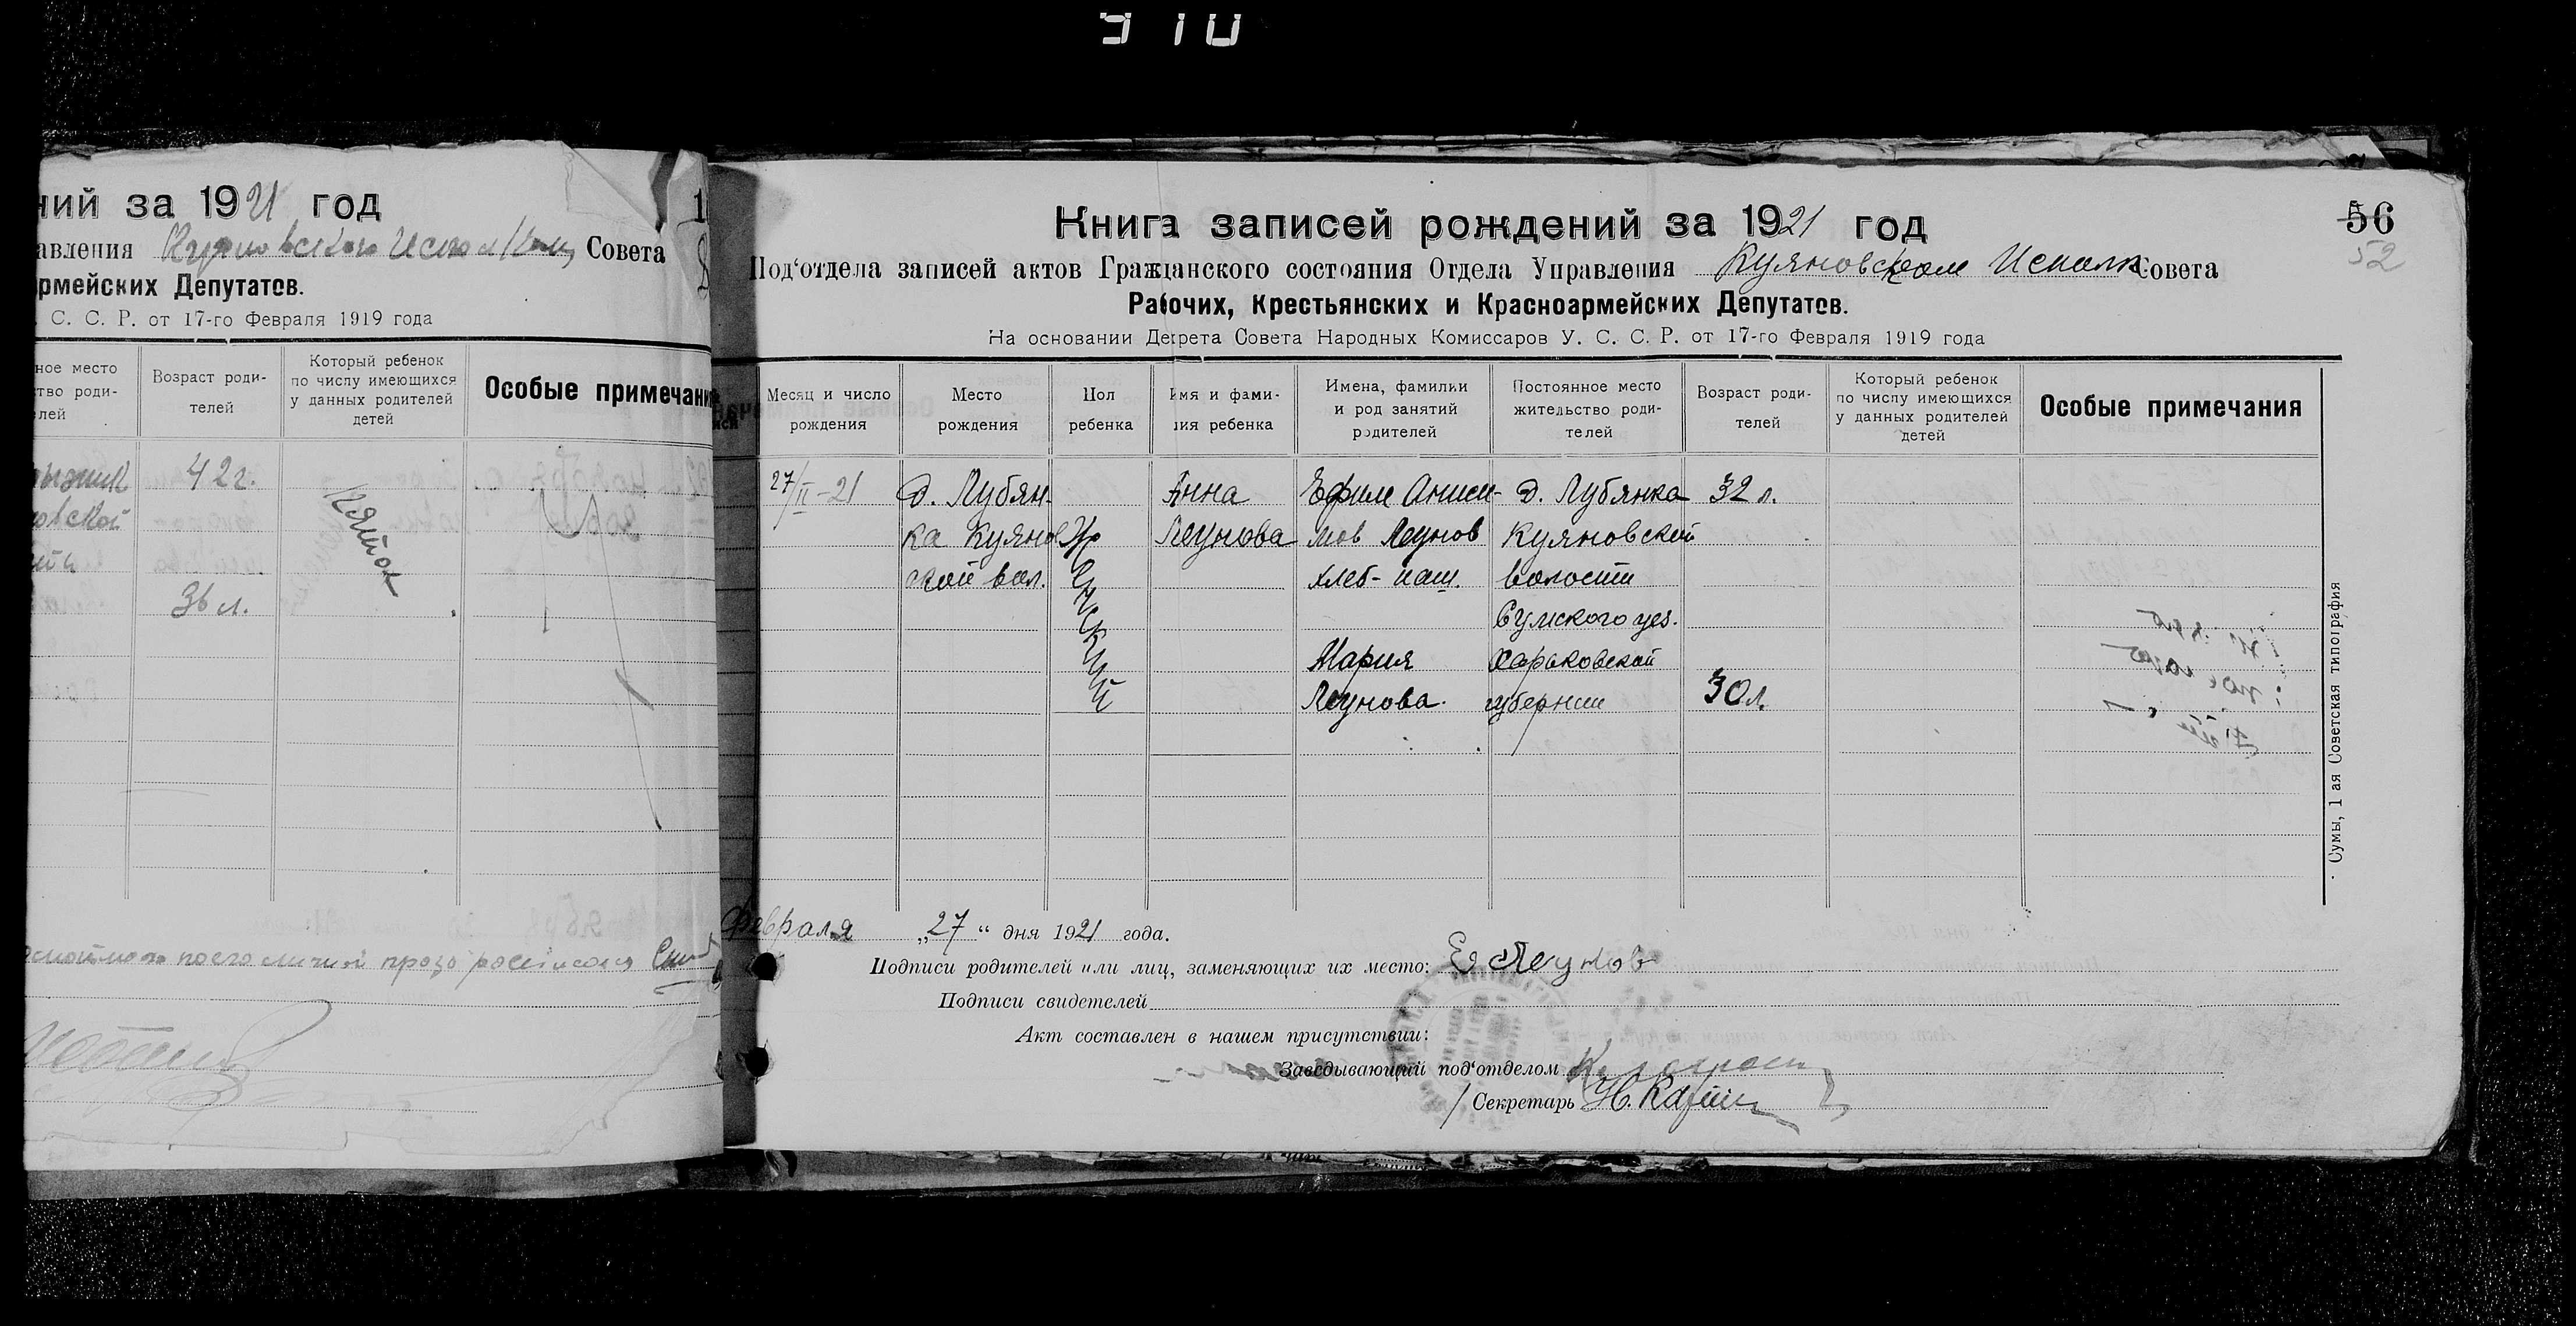 910
ний за 1921 год
авления Куяновского Исполкома Совета
рмейских Депутатов.
. С. С. Р. от 17-го Февраля 1919 года
ное место
ство роди-
лей
Возраст роди-
телей
Который ребенок
по числу имеющихся
у данных родителей
детей
Особые примечани
42 г.
овской
пятой
36 л.
Книга записей рождений за 1921 год
56
52
Под‘отдела записей актов Гражданского состояния Отдела Управления Куяновском Исполк Совета
Рабочих, Крестьянских и Красноармейских Депутатов.
На основании Декрета Совета Народных Комиссаров У. С. С. Р. от 17-го Февраля 1919 года
Месяц и число
рождения
Место
рождения
Пол
ребенка
Имя и фами-
лия ребенка
Имена, фамилии
и род занятий
родителей
Постоянное место
жительство роди-
телей
Возраст роди-
телей
Который ребенок
по числу имеющихся
у данных родителей
детей
Особые примечания
27/II-21
д. Лубян-
ка Куянов
ской вол.
Женский
Анна
Леунова
Ефим Аниси-
мов Леунов
хлеб-паш.
Мария
Леунова.
д. Лубянка
Куяновской
волости
Сумского уез.
Харьковской
губернии
32 л.
30 л.
Февраля „27“ дня 1921 года.
Подписи родителей или лиц, заменяющих их место: Е Леунов
Подписи свидетелей
Акт составлен в нашем присутствии:
Заведывающий под‘отделом
Секретарь Н.
Сумы, 1 ая Советская типография